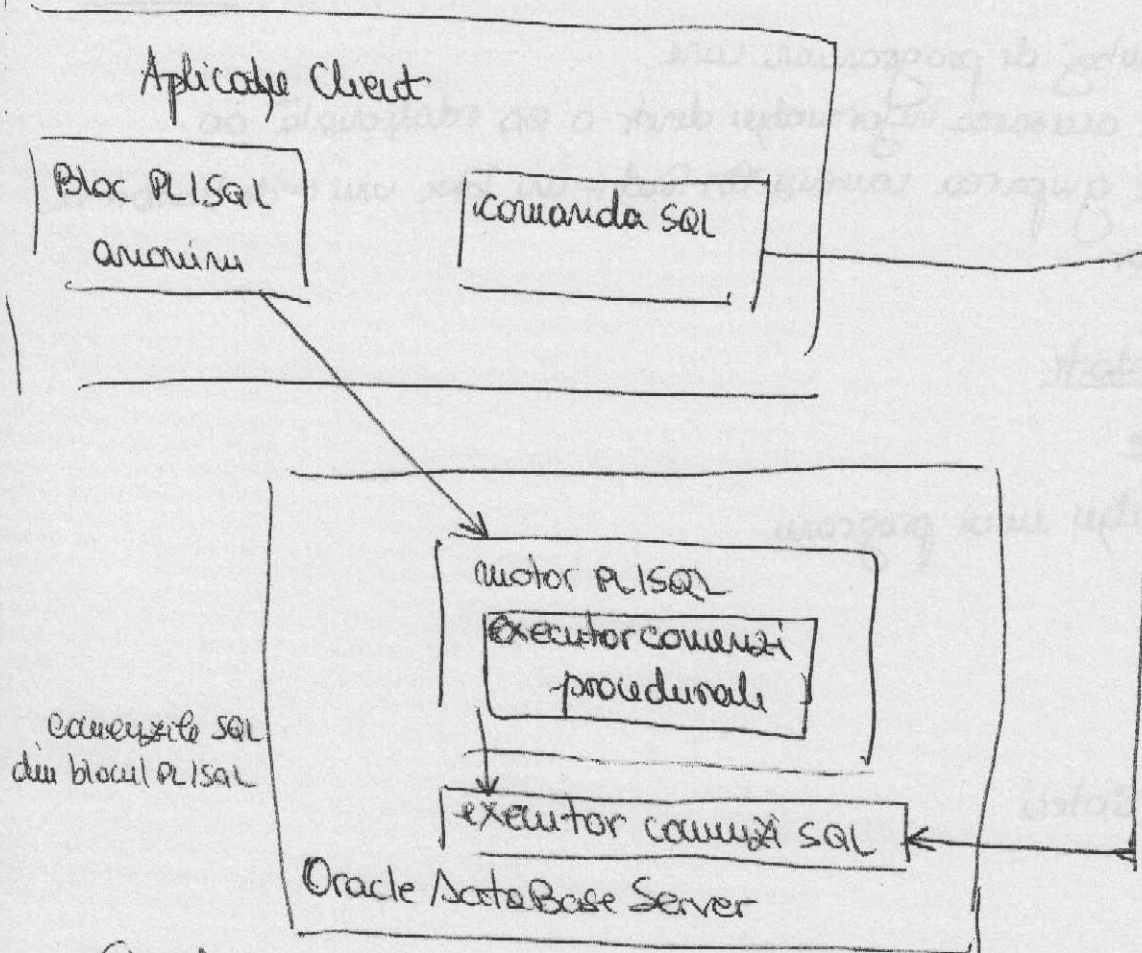 Aplicație Client
Bloc PL/SQL
anonim
comanda SQL
motor PL/SQL
executor comenzi
procedurale
comenzile SQL
din blocul PL/SQL
executor comenzi SQL
Oracle DataBase Server